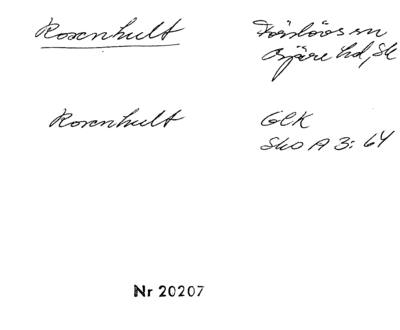 Rosenhult
Förslövs sn
Bjäre hd, Sk
Rosenhult
GEK
SkO A 3: 64
Nr 20207